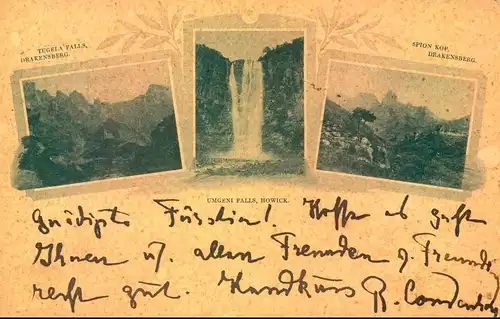 TUGELA FALLS,
DRAKENSBERG.
SPION KOP,
DRAKENSBERG.
UMGENI FALLS, HOWICK.
Gnädigste Fürstin! Hoffe es geht
Ihnen u. allen Freunden u. Freunde
recht gut. Handkuss R. Coudenhove